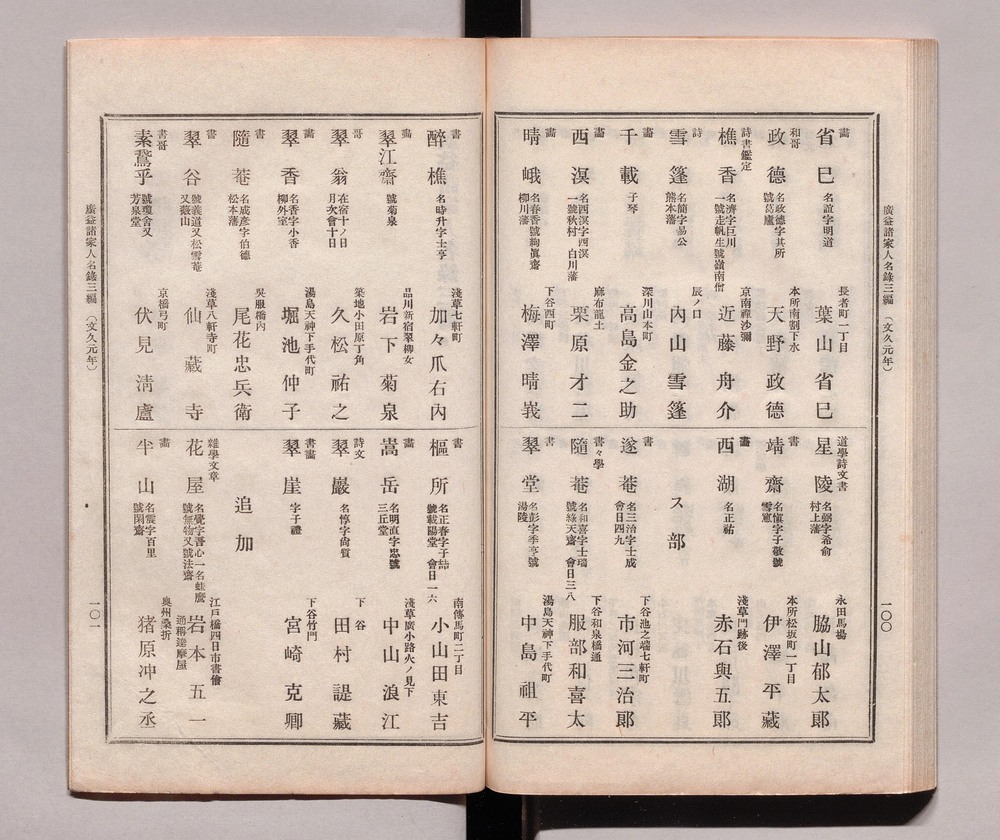 廣益諸家人名錄三編 (文久元年)
一〇〇
畵
省巳
名誼字明道
長者町一丁目
葉山省巳
和哥
政德
名政德字其所
號葛廬
本所南割下水
天野政德
詩書鑑定
樵香
名濟字巨川
一號走帆生號嶺南僧
京南禪沙彌
近藤舟介
詩
雪篷
名簡字易公
熊本藩
辰ノ口
內山雪篷
畵
千載
子琴
深川山本町
高島金之助
畵
西溟
名西溟字西溟
一號秋村 白川藩
麻布龍土
栗原才二
畵
晴峨
名春香號絢眞齋
柳川藩
下谷西町
梅澤晴峩
道學詩文書
星陵
名弼字希俞
村上藩
永田馬塲
脇山郁太郞
書
靖齋
名愼字子敬號
雪窻
本所松坂町一丁目
伊澤平藏
畵
西湖
名正祐
淺草門跡後
赤石與五郞
ス部
書
遂菴
名三治字士成
會日四九
下谷池之端七軒町
市河三治郞
書々學
隨菴
名和喜字士瑞
號綠天齋 會日三八
下谷和泉橋通
服部和喜太
書
翠堂
名彭字季亨號
湯陵
湯島天神下手代町
中島祖平
書
醉樵
名時升字士亨
淺草七軒町
加々爪右內
畵
翠江齋
號菊泉
品川新宿翠柳女
岩下菊泉
哥
翠翁
在宿十ノ日
月次會十日
築地小田原丁角
久松祐之
畵
翠香
名香字小香
柳外室
湯島天神下手代町
堀池仲子
書
隨菴
名成彥字伯德
松本藩
吳服橋內
尾花忠兵衛
書
翠谷
號義道又松雪菴
又薇山
淺草八軒寺町
仙藏寺
書哥
素鵞乎
號瓊舍又
芳泉堂
京橋弓町
伏見淸廬
書
樞所
名正春字子喆
號載陽堂 會日一六
南傳馬町二丁目
小山田東吉
畵
嵩岳
名明直字忠號
三丘堂
淺草廣小路火ノ見下
中山浪江
詩文
翠巖
名惇字尙質
下谷
田村諟藏
書畵
翠崖
字子禮
下谷竹門
宮崎克卿
追加
雜學文章
花屋
名覺字善心一名蛙麿
號無物又號法齋
江戶橋四日市書儈
通稱達摩屋
岩本五一
畵
半山
名震字百里
號閑齋
奥州桑折
猪原冲之丞
廣益諸家人名錄三編 (文久元年)
一〇一